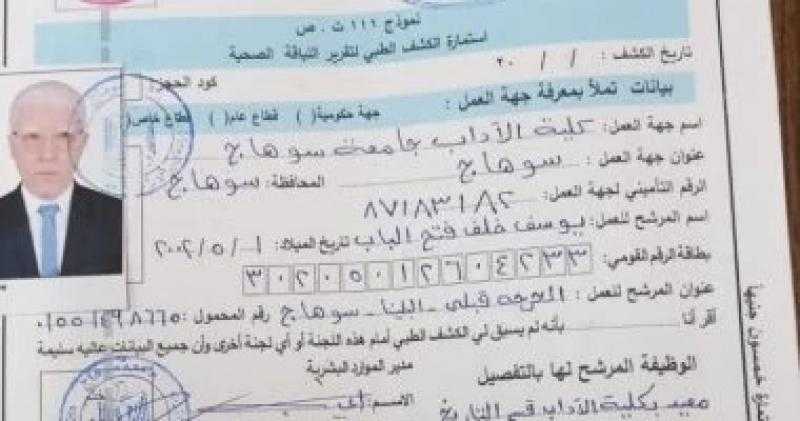 نموذج ١١١ ت . ص
استمارة الكشف الطبي لتقرير اللياقة الصحية
تاريخ الكشف : / / ٢٠
كود الحجز :
بيانات تملأ بمعرفة جهة العمل : جهة حكومية( ) قطاع عام( ) قطاع خاص( )
اسم جهة العمل : كلية الآداب جامعة سوهاج
عنوان جهة العمل : سوهاج المحافظة: سوهاج
الرقم التأميني لجهة العمل: ٨٧١٨٣١٨٢
اسم المرشح للعمل: يوسف خلف فتح الباب تاريخ الميلاد: ١ / ٥ / ٢٠٠٢
بطاقة الرقم القومي: ٣٠٢٠٥٠١٢٦٠٤٢٣٣
عنوان المرشح للعمل : العرجه قبلى - البلينا - سوهاج رقم المحمول :
أقر أنا بأنه لم يسبق لي الكشف الطبي أمام هذه اللجنة أو أي لجنة أخرى وأن جميع البيانات عاليه سليمة
الوظيفة المرشح لها بالتفصيل
مدير الموارد البشرية
معيد بكلية الآداب قسم التاريخ
الاسم:
خمسون جنيها